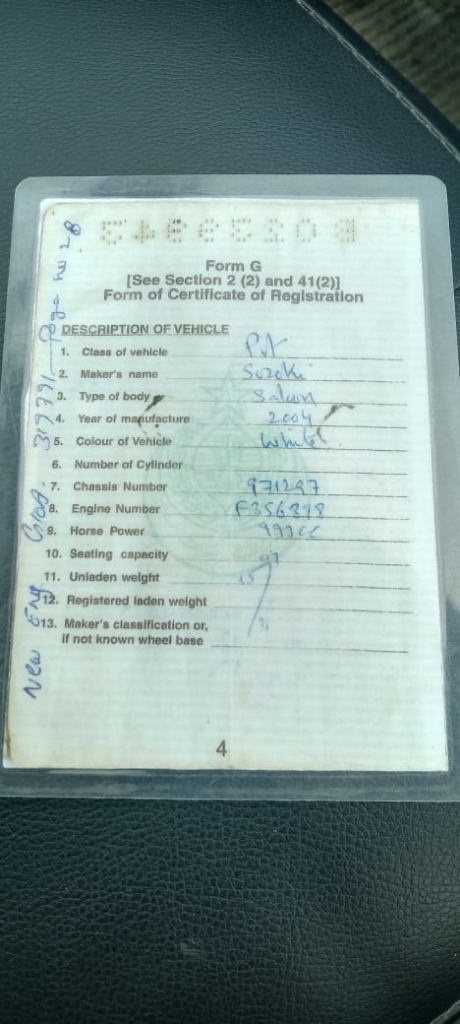 Form G
[See Section 2 (2) and 41(2)]
Form of Certificate of Registration
DESCRIPTION OF VEHICLE
1. Class of vehicle Pvt
2. Maker's name Suzuki
3. Type of body Saloon
4. Year of manufacture 2004
5. Colour of Vehicle White
6. Number of Cylinder
7. Chassis Number 971297
8. Engine Number
9. Horse Power 993cc
10. Seating capacity
11. Unladen weight
12. Registered laden weight
13. Maker's classification or,
if not known wheel base
4
New Eng 319791 Page no 28